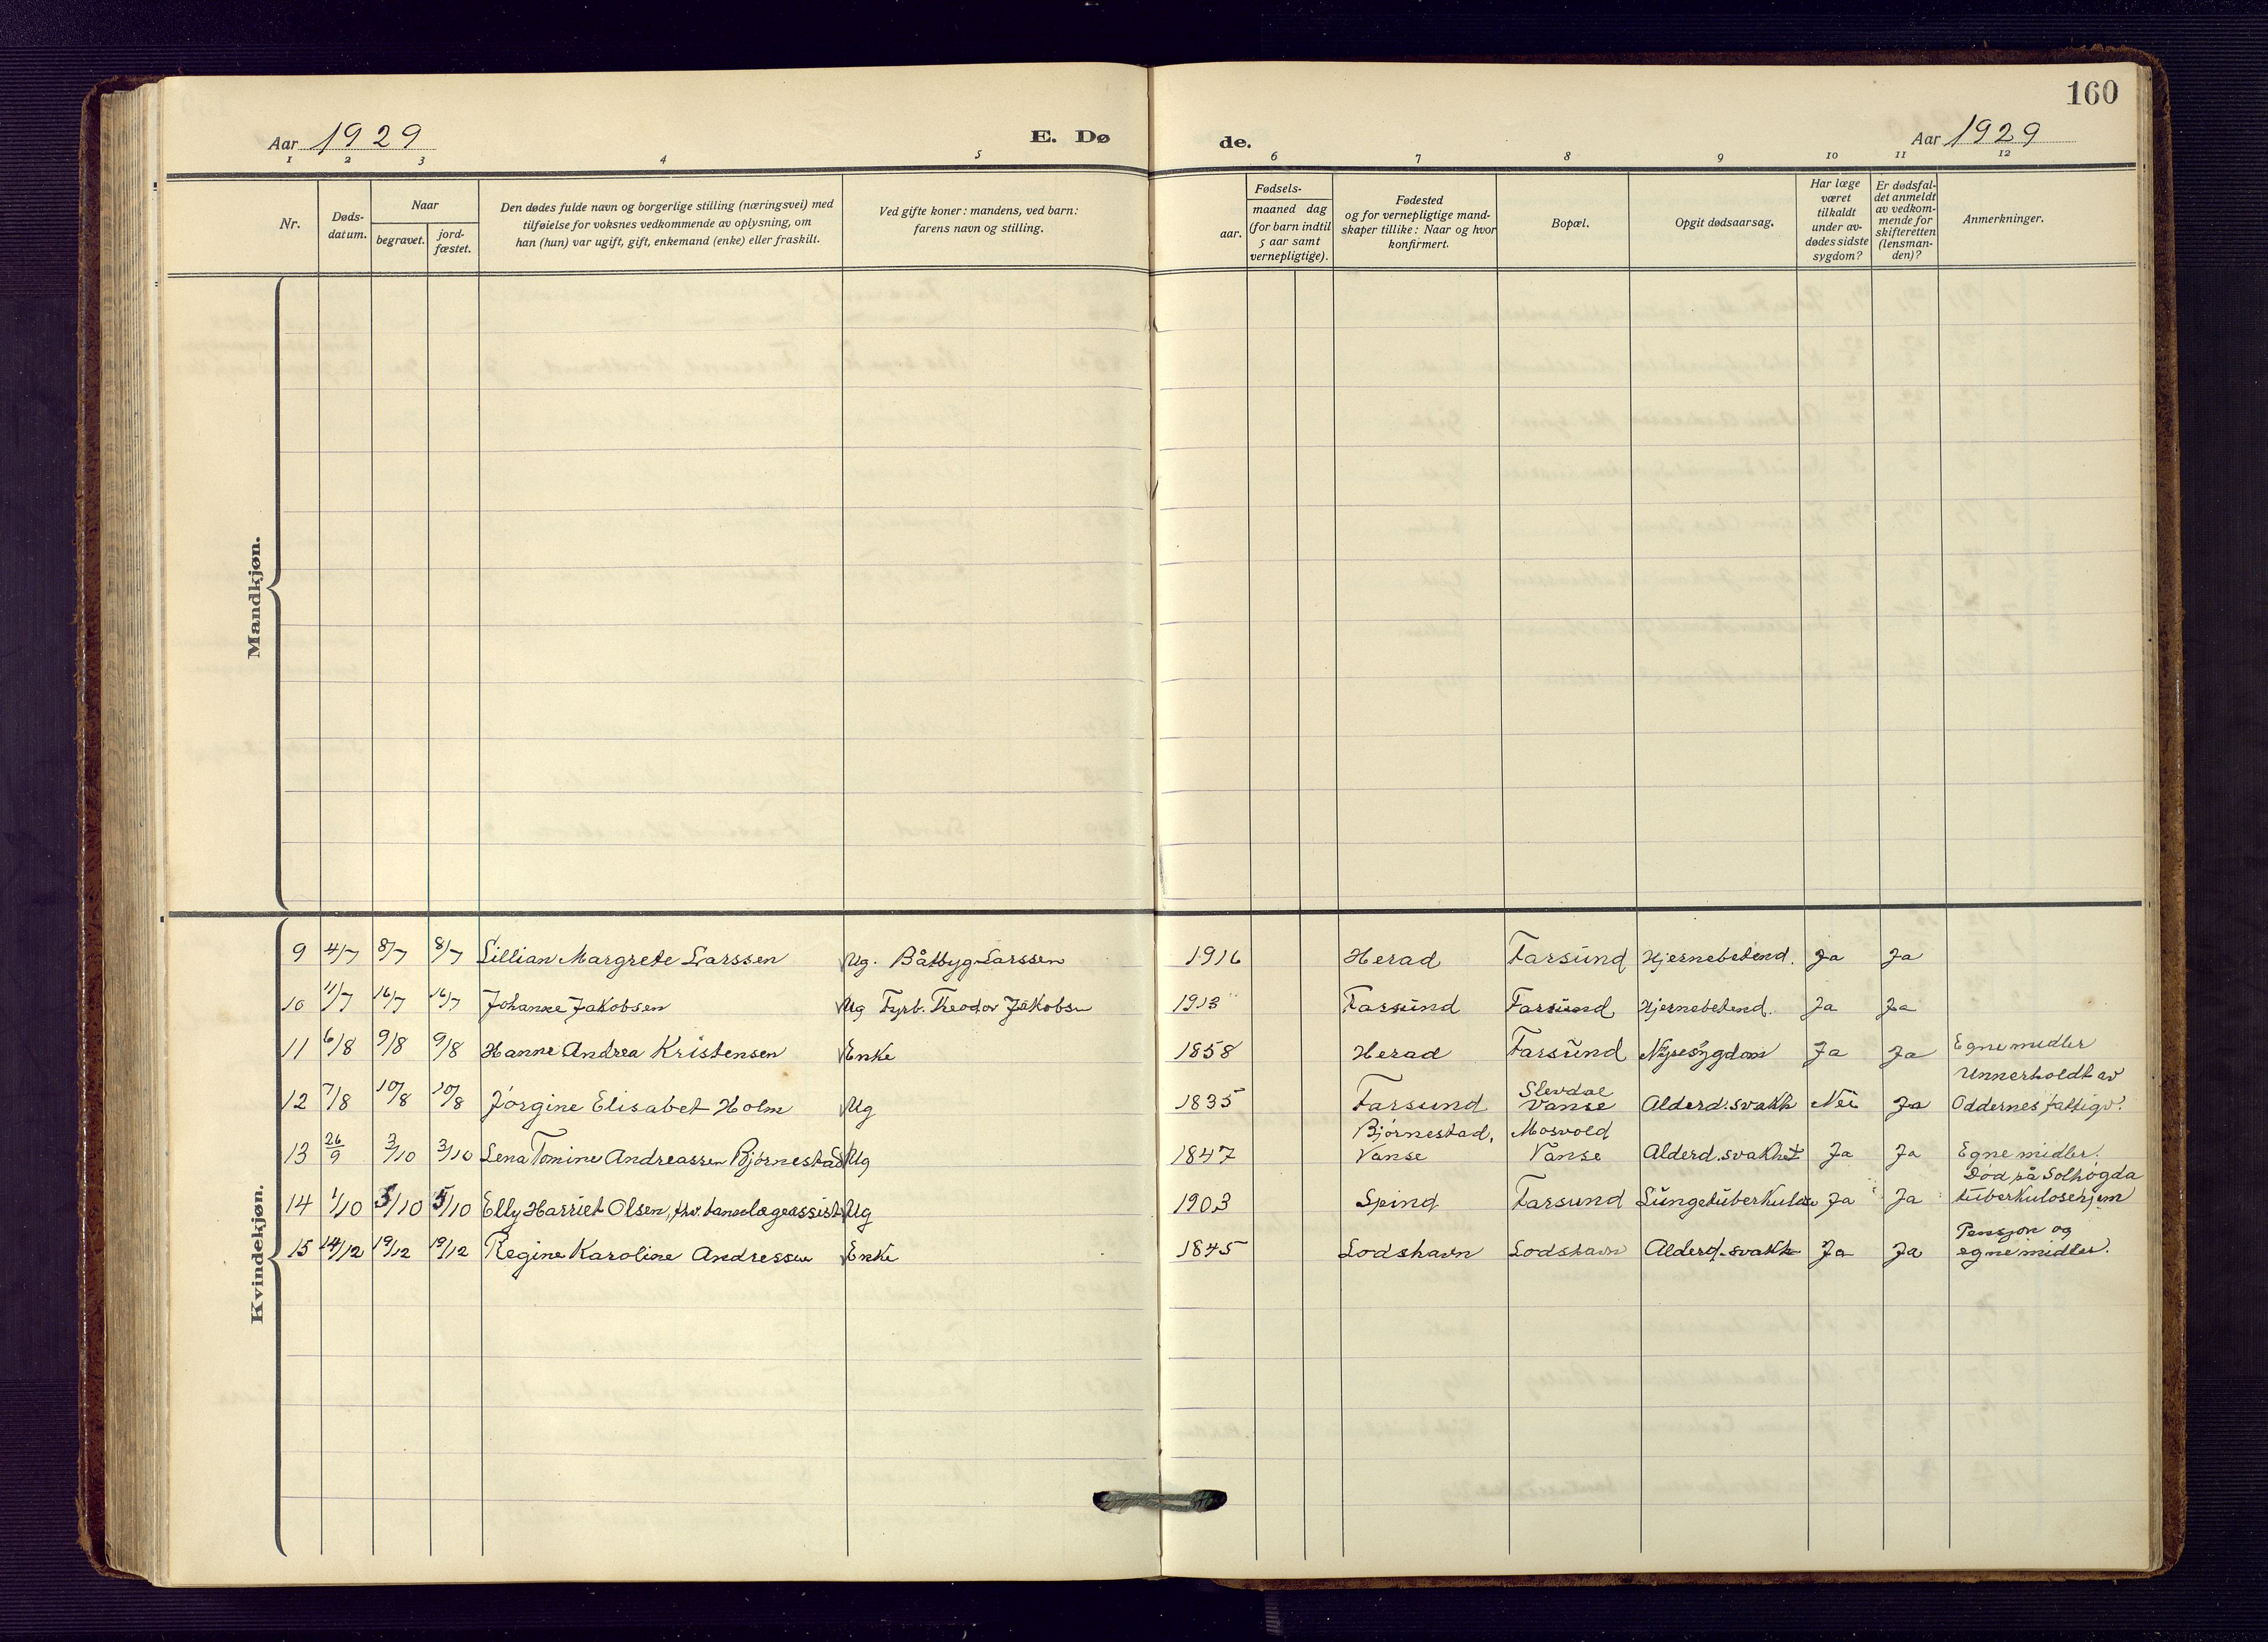 160
Aar 1929
E. Dø
de.
Aar 1929
1 2 3 4 5 6 7 8 9 10 11 12
Nr.
Døds-
datum.
Naar
begravet.
jord-
fæstet.
Den dødes fulde navn og borgerlige stilling (næringsvei) med
tilføielse for voksnes vedkommende av oplysning, om
han (hun) var ugift, gift, enkemand (enke) eller fraskilt.
Ved gifte koner: mandens, ved barn:
farens navn og stilling.
Fødsels-
aar.
maaned dag
(for barn indtil
5 aar samt
vernepligtige).
Fødested
og for vernepligtige mand-
skaper tillike: Naar og hvor
konfirmert.
Bopæl.
Opgit dødsaarsag.
Har læge
været
tilkaldt
under av-
dødes sidste
sygdom?
Er dødsfal-
det anmeldt
av vedkom-
mende for
skifteretten
(lensman-
den)?
Anmerkninger.
Mandkjøn.
Kvindekjøn.
9 4/7 8/7 8/7 Lillian Margrete Larssen Ug. Båtbyg Larssen 1916 Herad Farsund Hjernebetend. Ja Ja
10 11/7 16/7 16/7 Johanne Jakobsen Ug Fyrb. Theodor Jakobsen 1913 Farsund Farsund Hjernebetend. Ja Ja
11 6/8 9/8 9/8 Hanne Andrea Kristensen Enke 1858 Herad Farsund Nyresygdom Ja Ja Egne midler
12 7/8 10/8 10/8 Jørgine Elisabet Holm Ug 1835 Farsund Slevdal Vanse Alderd.svakh Nei Ja Unnerholdt av
Oddernes fattigv.
13 26/9 3/10 3/10 Lena Tomine Andreassen Bjørnestad Ug 1847 Bjørnestad, Vanse Mosvold Vanse Alderd.svakhet Ja Ja Egne midler.
14 1/10 5/10 5/10 Elly Harriet Olsen, fhv. tannlægeassist Ug 1903 Spind Farsund Lungetuberkulose Ja Ja Død på Solhøgda
tuberkulosehjem
15 14/12 19/12 19/12 Regine Karoline Andressen Enke 1845 Lodshavn Lodshavn Alderd.svakh Ja Ja Pensjon og
egne midler.